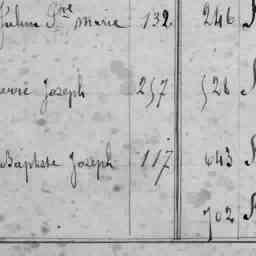 Julien P.re Marie 132 246
Pierre Joseph 257 526
Baptiste Joseph 117 643
702